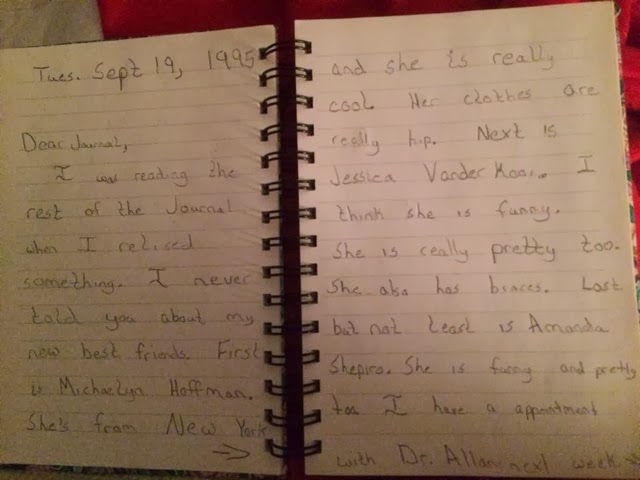 Tues. Sept 19, 1995
Dear Journal,
I was reading the
rest of the Journal
when I relised
something. I never
told you about my
new best friends. First
is Michaelyn Hoffman.
She's from New York
and she is really
cool. Her clothes are
really hip. Next is
Jessica Vander Kooi. I
think she is funny.
She is really pretty too.
She also has braces. Last
but not least is Amanda
Shepiro. She is funny and pretty
too I have a appointment
with Dr. Allan next week